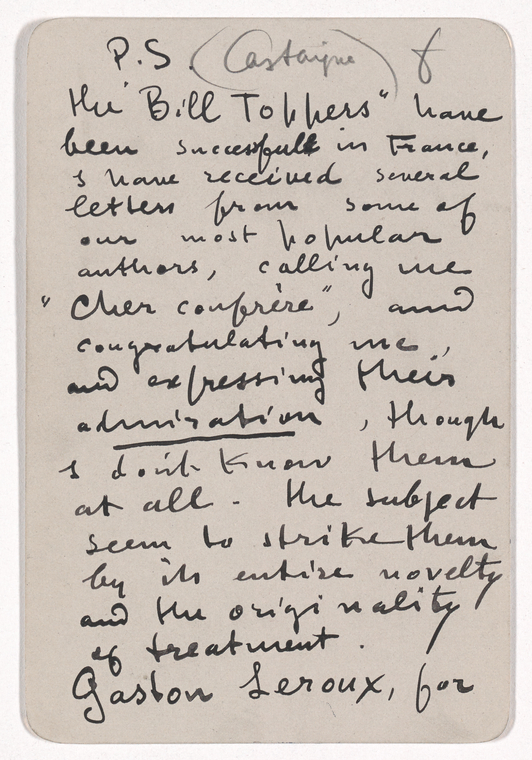 P.S. (Castaigne) f
The "Bill Toppers" have
been successfull in France,
I have received several
letters from some of
our most popular
authors, calling me
"Cher confrère", and
congratulating me,
and expressing their
admiration, though
I don't know them
at all. The subject
seem to strike them
by its entire novelty
and the originality
of treatment.
Gaston Leroux, for